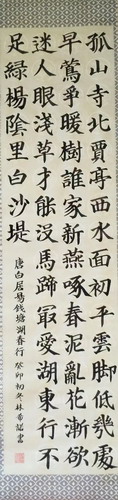 孤山寺北賈亭西水面初平雲脚低幾處
早鶯爭暖樹誰家新燕啄春泥亂花漸欲
迷人眼淺草才能沒馬蹄最愛湖東行不
足綠楊陰里白沙堤
唐白居易錢塘湖春行 癸卯初冬林希認書